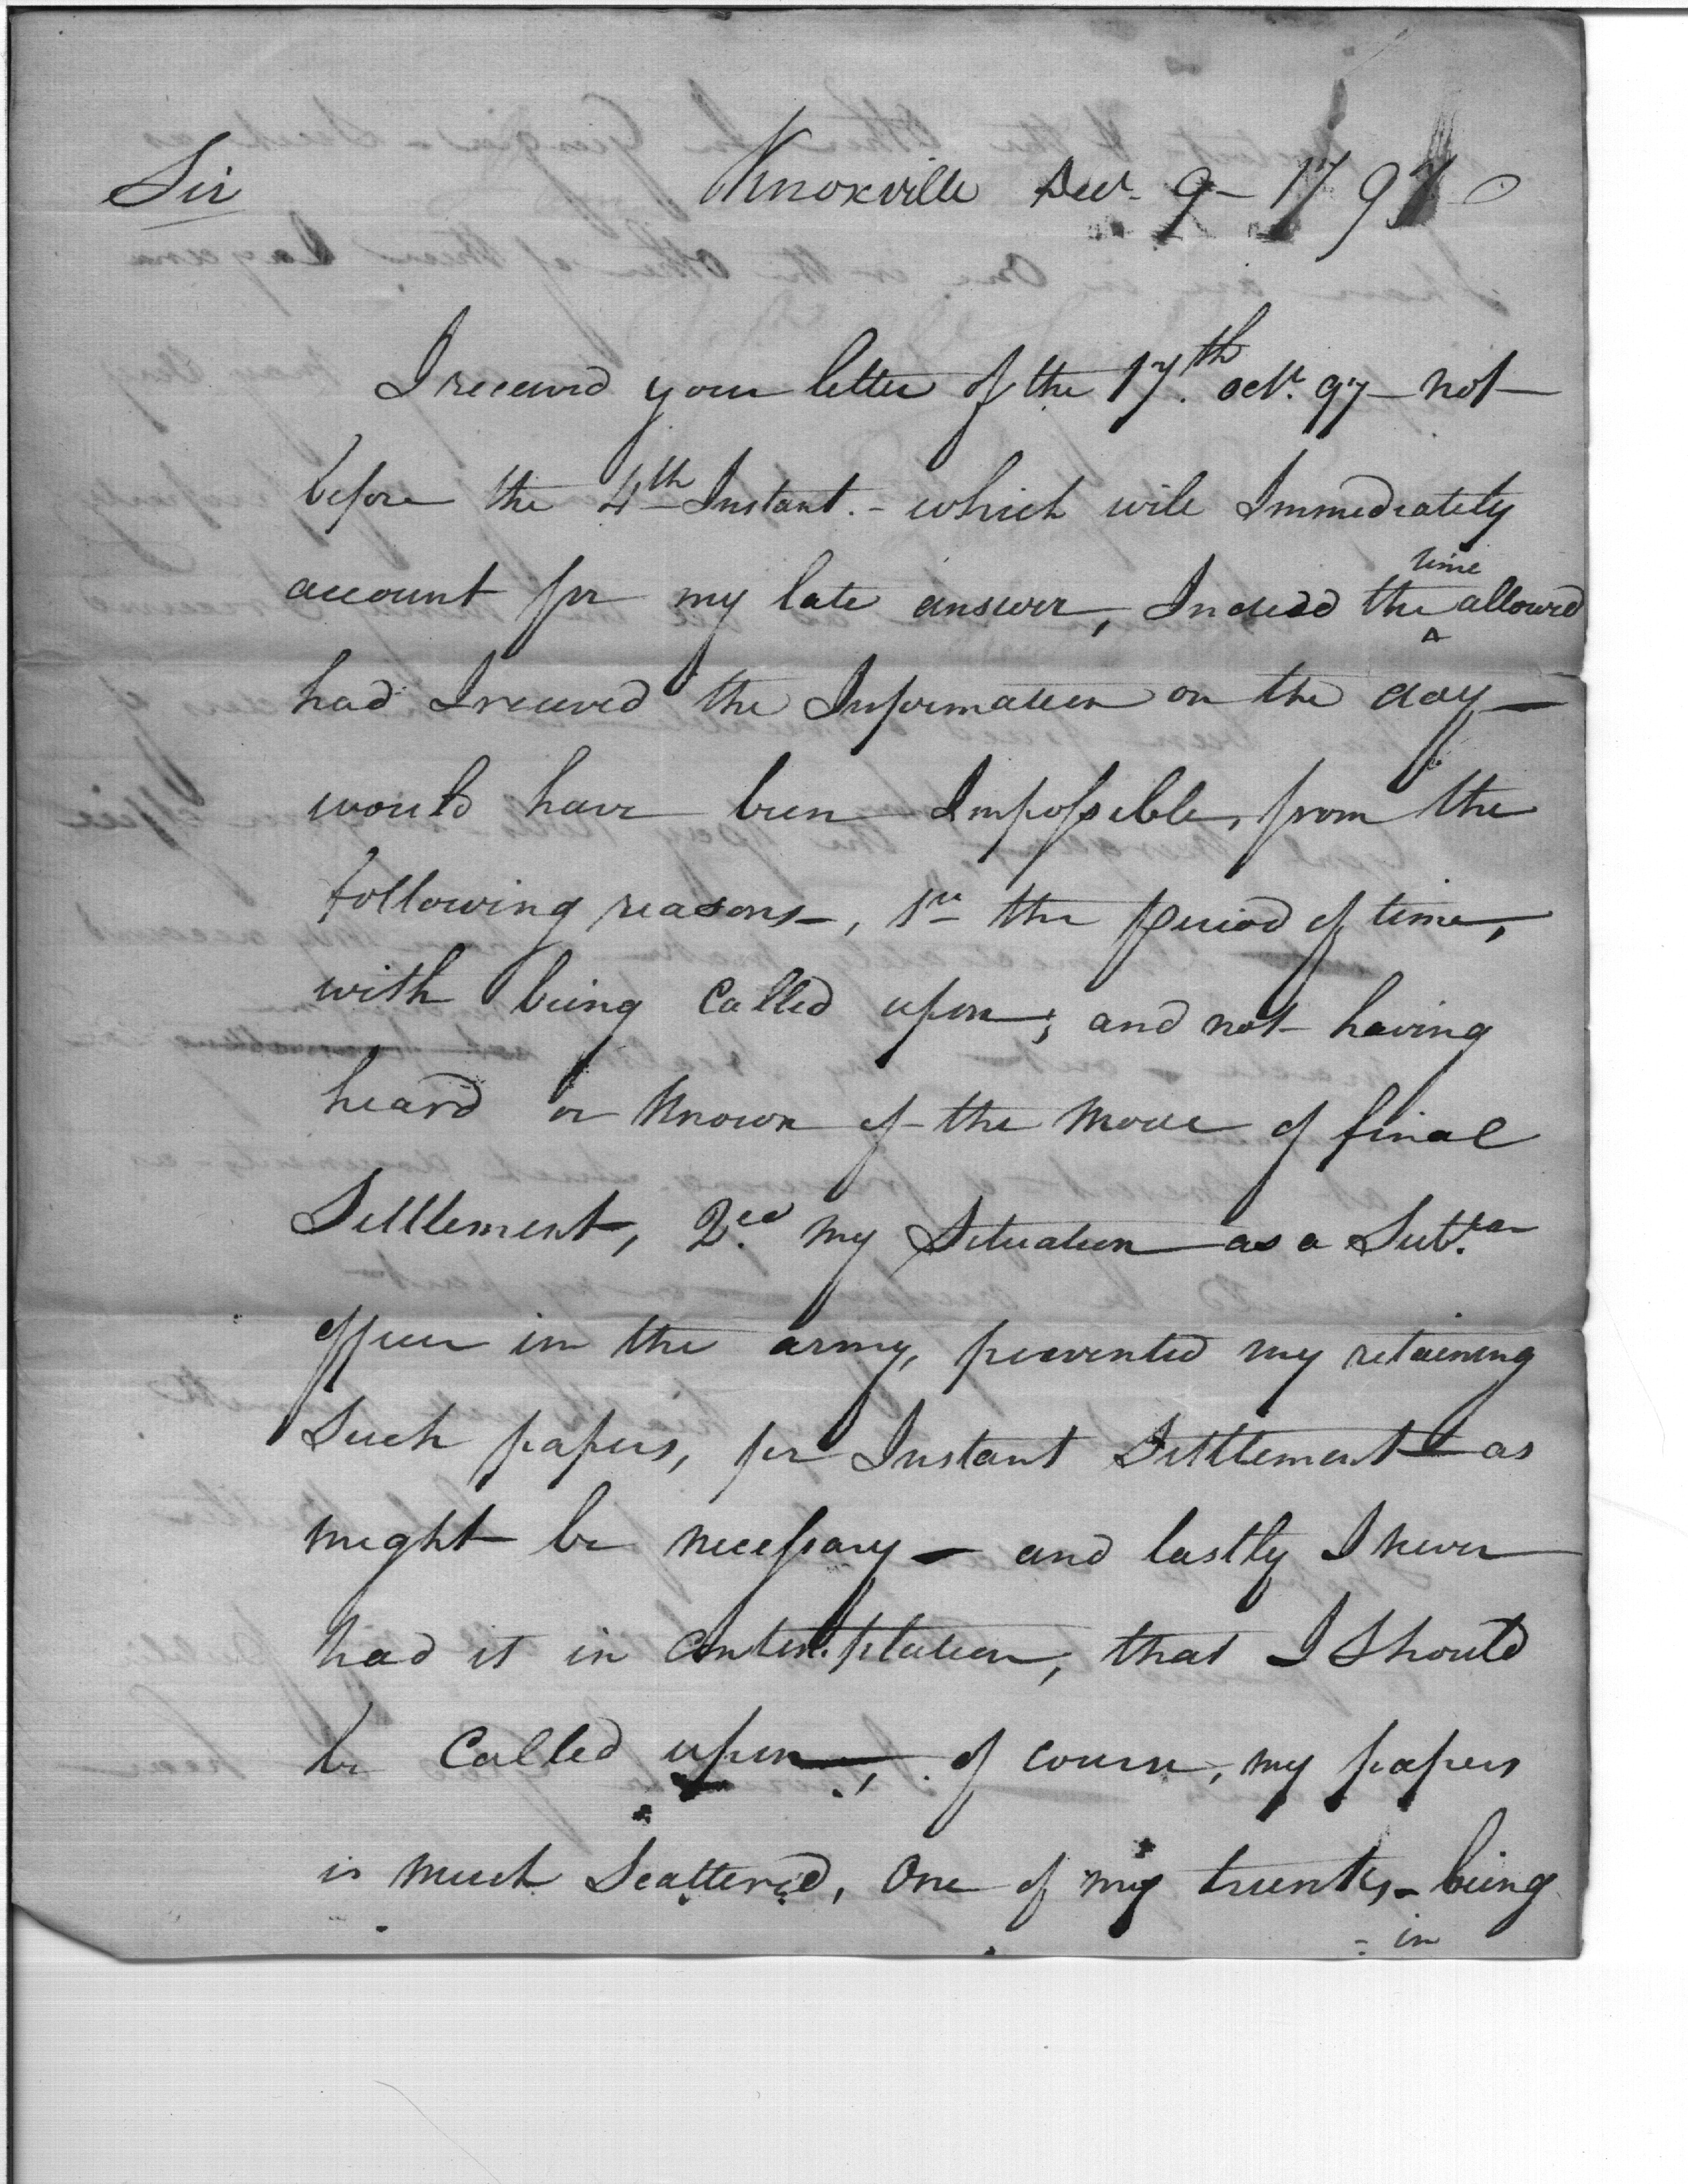 Sir Knoxville Decr. 9 - 1797
I received your letter of the 17th. octr. 97 - not
before the 4th Instant. - which will Immediately
account for my late answer, Indeed the time allowed
had I received the Information on the day -
would have been Impossible, from the
following reasons -, 1st the period of time,
with being Called upon; and not having
heard or Known of the mode of final
Settlement, 2ed my Situation as a Subtan
officer in the army, prevented my retaining
Such papers, for Instant Settlement as
might be necessary - and lastly I never
had it in Contemplation, that I Should
be Called upon, of course, my papers
is much Scattered, One of my trunks, - being
in